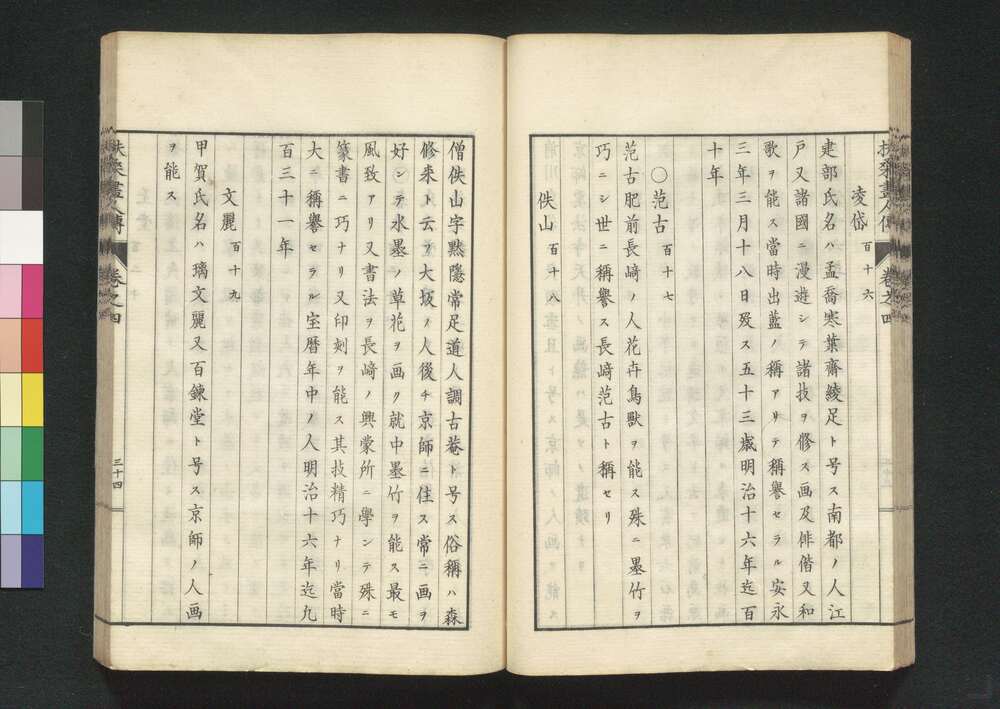 凌岱 百十六
建部氏名ハ孟喬寒葉齋綾足ト号ス南都ノ人江
戸又諸國ニ漫遊シテ諸技ヲ修ス画及俳偕又和
歌ヲ能ス當時出藍ノ稱アリテ稱譽セラル安永
三年三月十八日歿ス五十三歳明治十六年迄百
十年
〇范古 百十七
范古肥前長﨑ノ人花卉鳥獸ヲ能ス殊ニ墨竹ヲ
巧ニシ世ニ稱譽ス長﨑范古ト稱セリ
佚山 百十八
僧佚山字黙隱常足道人調古菴ト号ス俗稱ハ森
修来ト云フ大坂ノ人後チ京師ニ住ス常ニ画ヲ
好ンテ水墨ノ草花ヲ画ク就中墨竹ヲ能ス最モ
風致アリ又書法ヲ長﨑ノ興蒙所ニ學ンテ殊ニ
篆書ニ巧ナリ又印刻ヲ能ス其技精巧ナリ當時
大ニ稱譽セラル宝暦年中ノ人明治十六年迄九
百三十一年
文麗 百十九
甲賀氏名ハ璃文麗又百錬堂ト号ス京師ノ人画
ヲ能ス
扶桑畫人傳 卷之四
三十四